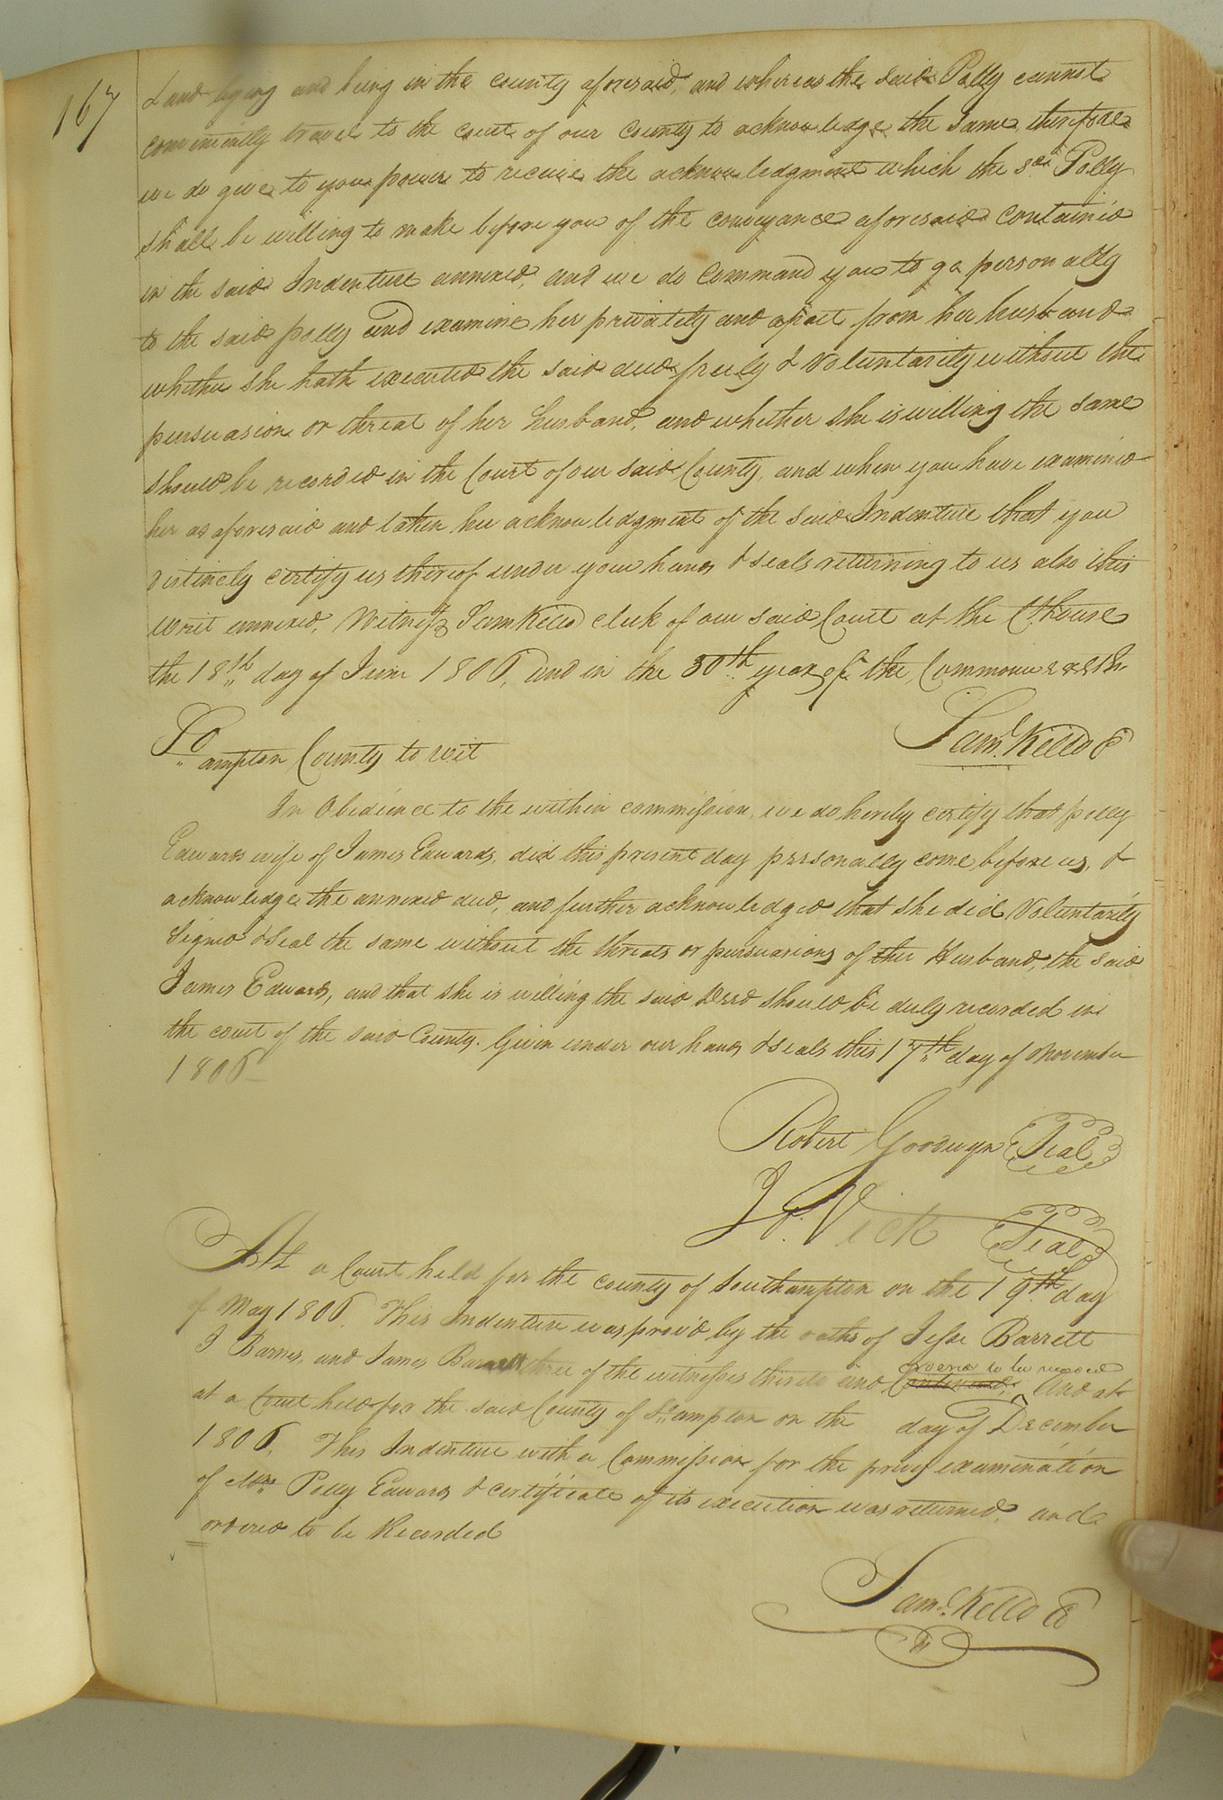 167
Land lying and being in the county aforesaid, and whereas the said Polly cannot
conveniently travel to the court of our county to acknowledge the same therefore
we do give to you power to receive the acknowledgment which the sd. Polly
shall be willing to make before you of the conveyance aforesaid contain'd
in the said Indenture annexed, and we do command you to go personally
to the said polly and examine her privately and apart from her husband
whether she hath executed the said deed freely & Voluntarily without the
persuasion or threat of her husband, and whether she is willing the same
should be recorded in the Court of our said County, and when you have examin'd
her as aforesaid and taken her acknowledgment of the said Indenture that you
distinctly certify us thereof under your hands & seals returning to us also this
writ annexed, Witness Sam Kello clerk of our said Court at the Cthouse
the 18th day of June 1806, and in the 30th year of the Commonwealth.
Saml. Kello C
So ampton County to wit
In Obedience to the within commission, we do hereby certify that polly
Edwards wife of James Edwards, did this present day personally come before us, &
acknowledge the annexed deed, and further acknowledged that she did Voluntarily
Signed & Seal the same without the threats or persuasions of her Husband, the said
James Edwards, and that she is willing the said Deed should be duly recorded in
the court of the said County. Given under our hands & seals this 17th day of November
1806
Robert Goodwyn Seal
Jo. Vick Seal
At a Court held for the county of Southampton on the 19th day
of May 1806. This Indenture was prov'd by the oaths of Jesse Barrett
J Barnes, and James Barrett three of the witnesses thereto and ordered to be record And at
at a Court held for the said County of So.ampton on the day of December
1806. This Indenture with a Commission for the privy examination
of Mrs. Polly Edwards & certificate of its execution was returned, and
ordered to be Recorded
Saml. Kello C